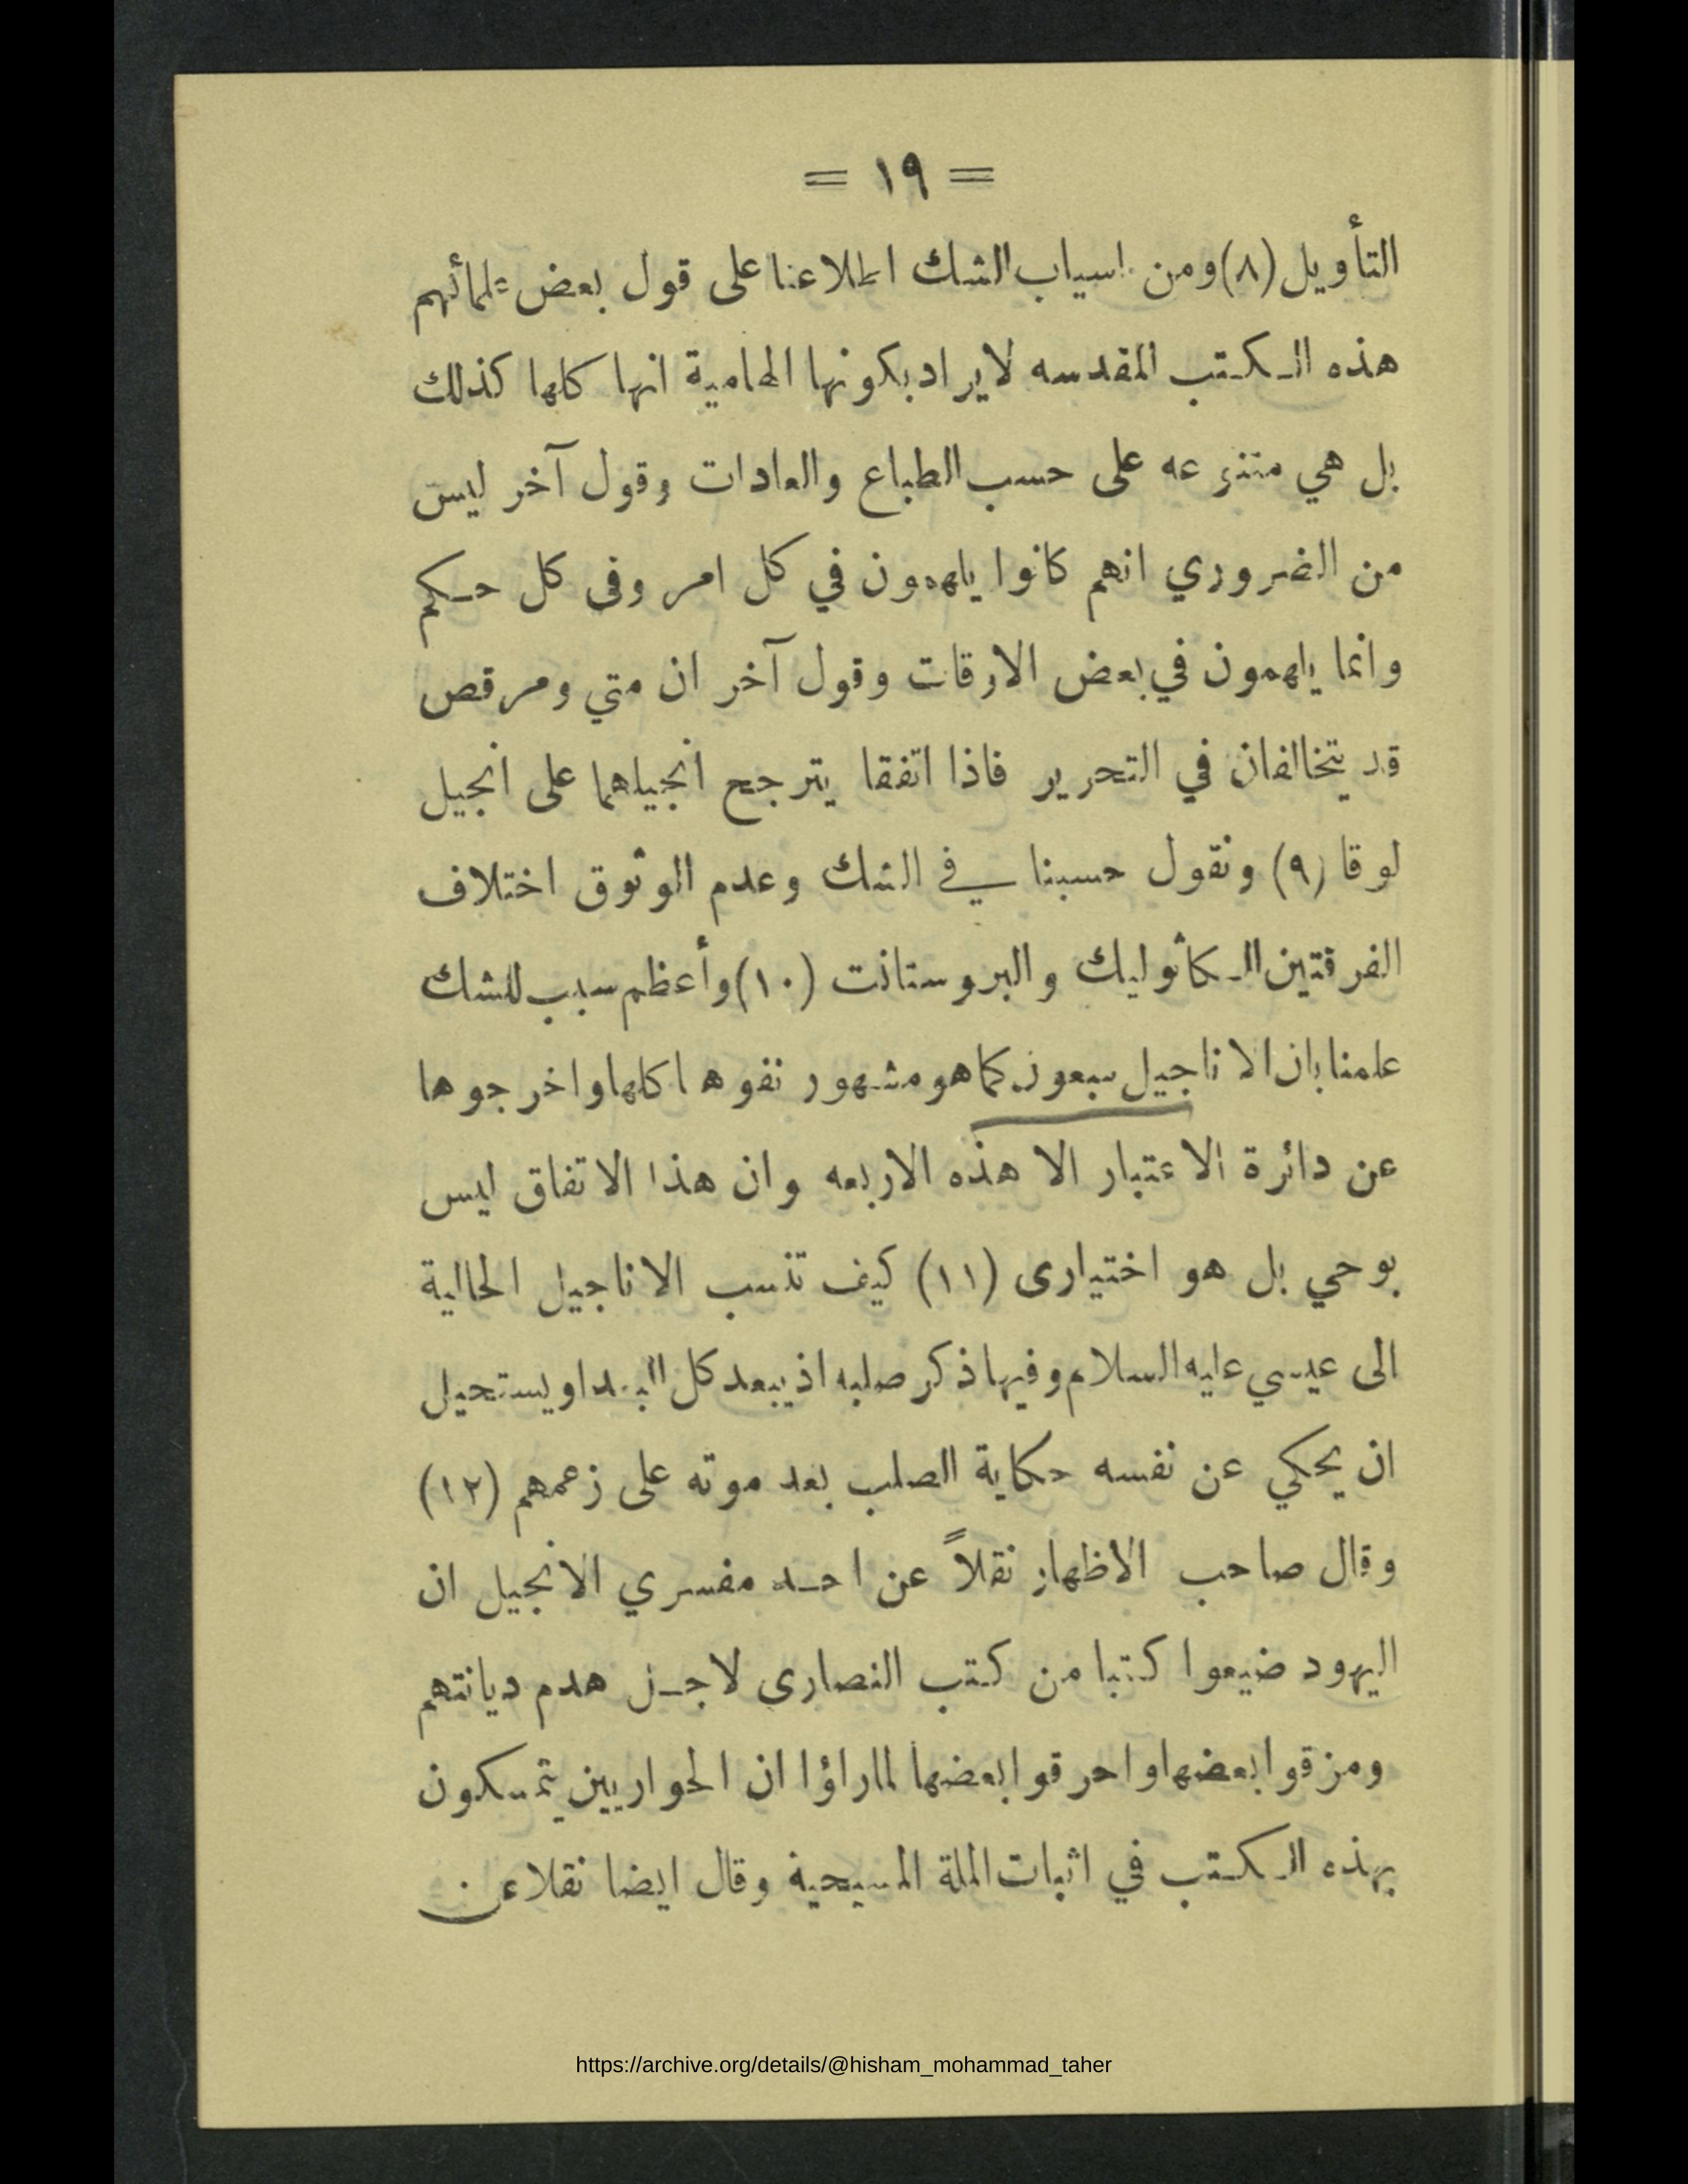 = ١٩ =
التأويل (٨) ومن اسباب الشك اطلاعنا على قول بعض علمائهم
هذه الكتب المقدسه لا يراد بكونها الهامية انها كلها كذلك
بل هي متنوعه على حسب الطباع والعادات وقول آخر ليس
من الضروري انهم كانوا يلهمون في كل امر وفى كل حكم
وانما يلهمون في بعض الاوقات وقول آخر ان متي ومرقص
قد يتخالفان في التحرير فاذا اتفقا يترجح انجيلهما على انجيل
لوقا (٩) ونقول حسبنا في الشك وعدم الوثوق اختلاف
الفرقتين الكاثوليك والبروستانت (١٠) وأعظم سبب للشك
علمنا بان الاناجيل سبعون كما هو مشهور نفوها كلها واخرجوها
عن دائرة الاعتبار الا هذه الاربعه وان هذا الاتفاق ليس
بوحي بل هو اختيارى (١١) كيف تنسب الاناجيل الحالية
الى عيسي عليه السلام وفيها ذكر صلبه اذ يبعد كل البعد او يستحيل
ان يحكي عن نفسه حكاية الصلب بعد موته على زعمهم (١٢)
وقال صاحب الاظهار نقلاً عن احد مفسري الانجيل ان
اليهود ضيعوا كتبا من كتب النصارى لاجل هدم ديانتهم
ومزقوا بعضها واحرقوا بعضها لما راؤا ان الحواريين يتمسكون
بهذه الكتب في اثبات الملة المسيحية وقال ايضا نقلا عن
https://archive.org/details/@hisham_mohammad_taher